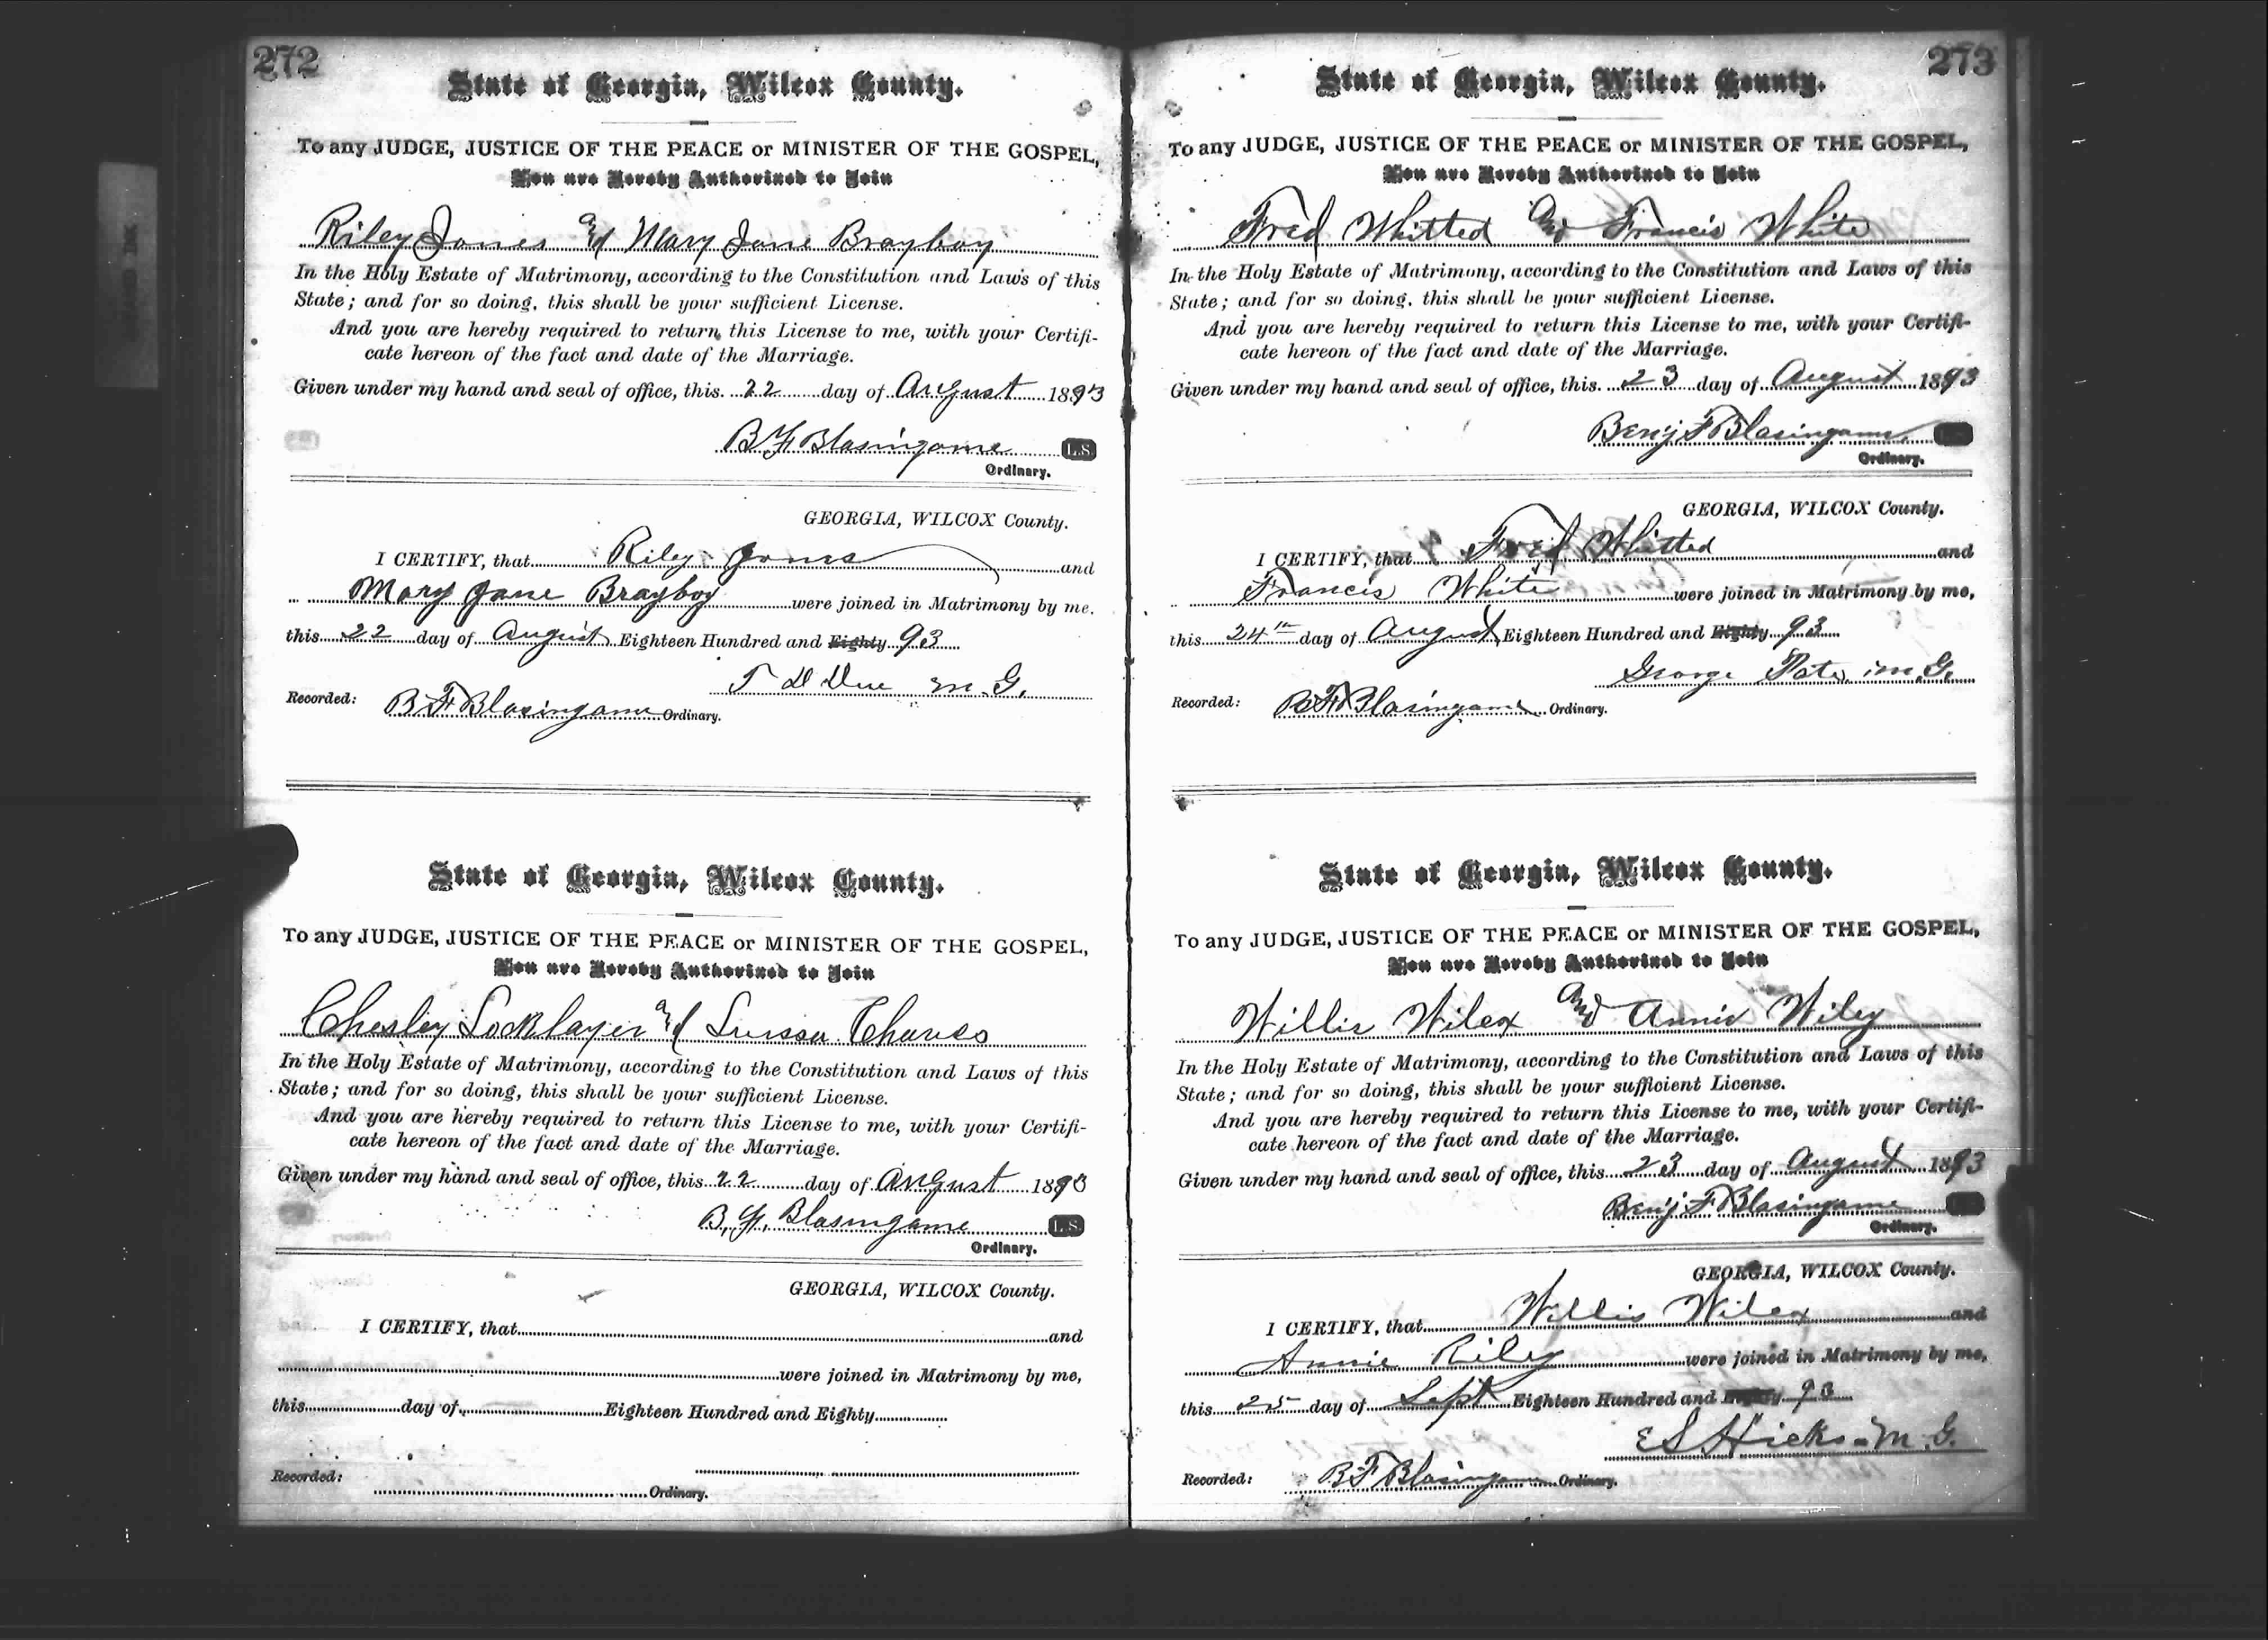 272
State of Georgia, Wilcox County.
To any JUDGE, JUSTICE OF THE PEACE or MINISTER OF THE GOSPEL,
You are Hereby Authorized to Join
Riley Jones and Mary Jane Brayboy
In the Holy Estate of Matrimony, according to the Constitution and Laws of this
State; and for so doing, this shall be your sufficient License.
And you are hereby required to return this License to me, with your Certifi-
cate hereon of the fact and date of the Marriage.
Given under my hand and seal of office, this 22 day of August 1893
B F Blasingame L.S.
Ordinary.
GEORGIA, WILCOX County.
I CERTIFY, that Riley Jones and
Mary Jane Brayboy were joined in Matrimony by me.
this 22 day of August Eighteen Hundred and Eighty 93
T D Due M.G.
Recorded: B F Blasingame Ordinary.
State of Georgia, Wilcox County.
To any JUDGE, JUSTICE OF THE PEACE or MINISTER OF THE GOSPEL,
You are Hereby Authorized to Join
Chesley Locklayer and Chaves
In the Holy Estate of Matrimony, according to the Constitution and Laws of this
State; and for so doing, this shall be your sufficient License.
And you are hereby required to return this License to me, with your Certifi-
cate hereon of the fact and date of the Marriage.
Given under my hand and seal of office, this 22 day of August 1893
B. F. Blasingame L.S.
Ordinary.
GEORGIA, WILCOX County.
I CERTIFY, that and
were joined in Matrimony by me,
this day of Eighteen Hundred and Eighty
Recorded: Ordinary.
273
State of Georgia, Wilcox County.
To any JUDGE, JUSTICE OF THE PEACE or MINISTER OF THE GOSPEL,
You are Hereby Authorized to Join
Fred Whitted and Francis White
In the Holy Estate of Matrimony, according to the Constitution and Laws of this
State; and for so doing, this shall be your sufficient License.
And you are hereby required to return this License to me, with your Certifi-
cate hereon of the fact and date of the Marriage.
Given under my hand and seal of office, this 23 day of August 1893
Benj F Blasingame
Ordinary.
GEORGIA, WILCOX County.
I CERTIFY, that Fred Whitted and
Francis White were joined in Matrimony by me,
this 24th day of August Eighteen Hundred and Eighty 93
George Pate M.G.
Recorded: B F Blasingame Ordinary.
State of Georgia, Wilcox County.
To any JUDGE, JUSTICE OF THE PEACE or MINISTER OF THE GOSPEL,
You are Hereby Authorized to Join
Willis Wilcox and Annie Wiley
In the Holy Estate of Matrimony, according to the Constitution and Laws of this
State; and for so doing, this shall be your sufficient License.
And you are hereby required to return this License to me, with your Certifi-
cate hereon of the fact and date of the Marriage.
Given under my hand and seal of office, this 23 day of August 1893
Benj F Blasingame
Ordinary.
GEORGIA, WILCOX County.
I CERTIFY, that Willis Wilcox and
Annie Riley were joined in Matrimony by me,
this 25 day of Sept Eighteen Hundred and Eighty 93
E S Hicks M.G.
Recorded: B F Blasingame Ordinary.